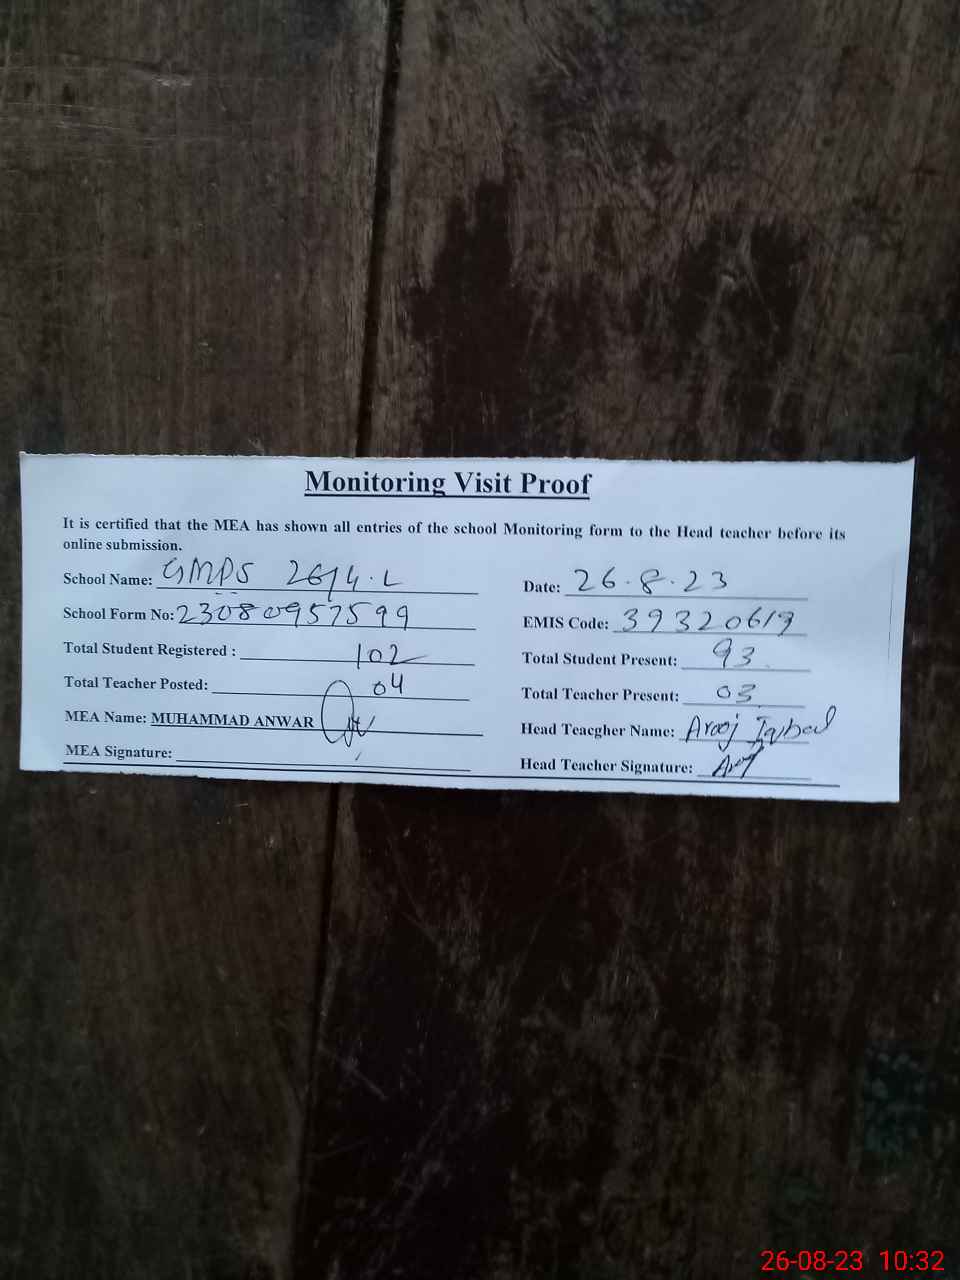 Monitoring Visit Proof
It is certified that the MEA has shown all entries of the school Monitoring form to the Head teacher before its
online submission.
School Name: GMPS 26/4.L
Date: 26.8.23
School Form No: 23080957599
EMIS Code: 39320619
Total Student Registered : 102
Total Student Present: 93
Total Teacher Posted: 04
Total Teacher Present: 03
MEA Name: MUHAMMAD ANWAR
Head Teacgher Name: Arooj Iqbal
MEA Signature:
Head Teacher Signature:
26-08-23 10:32